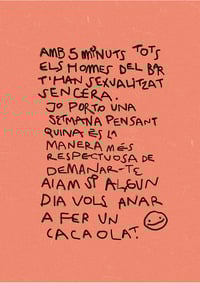 AMB 5 MINUTS TOTS
ELS HOMES DEL BAR
T'HAN SEXUALITZAT
SENCERA.
JO PORTO UNA
SETMANA PENSANT
QUINA ÉS LA
MANERA MÉS
RESPECTUOSA DE
DEMANAR-TE
AIAM SI ALGUN
DIA VOLS ANAR
A FER UN
CACAOLAT.